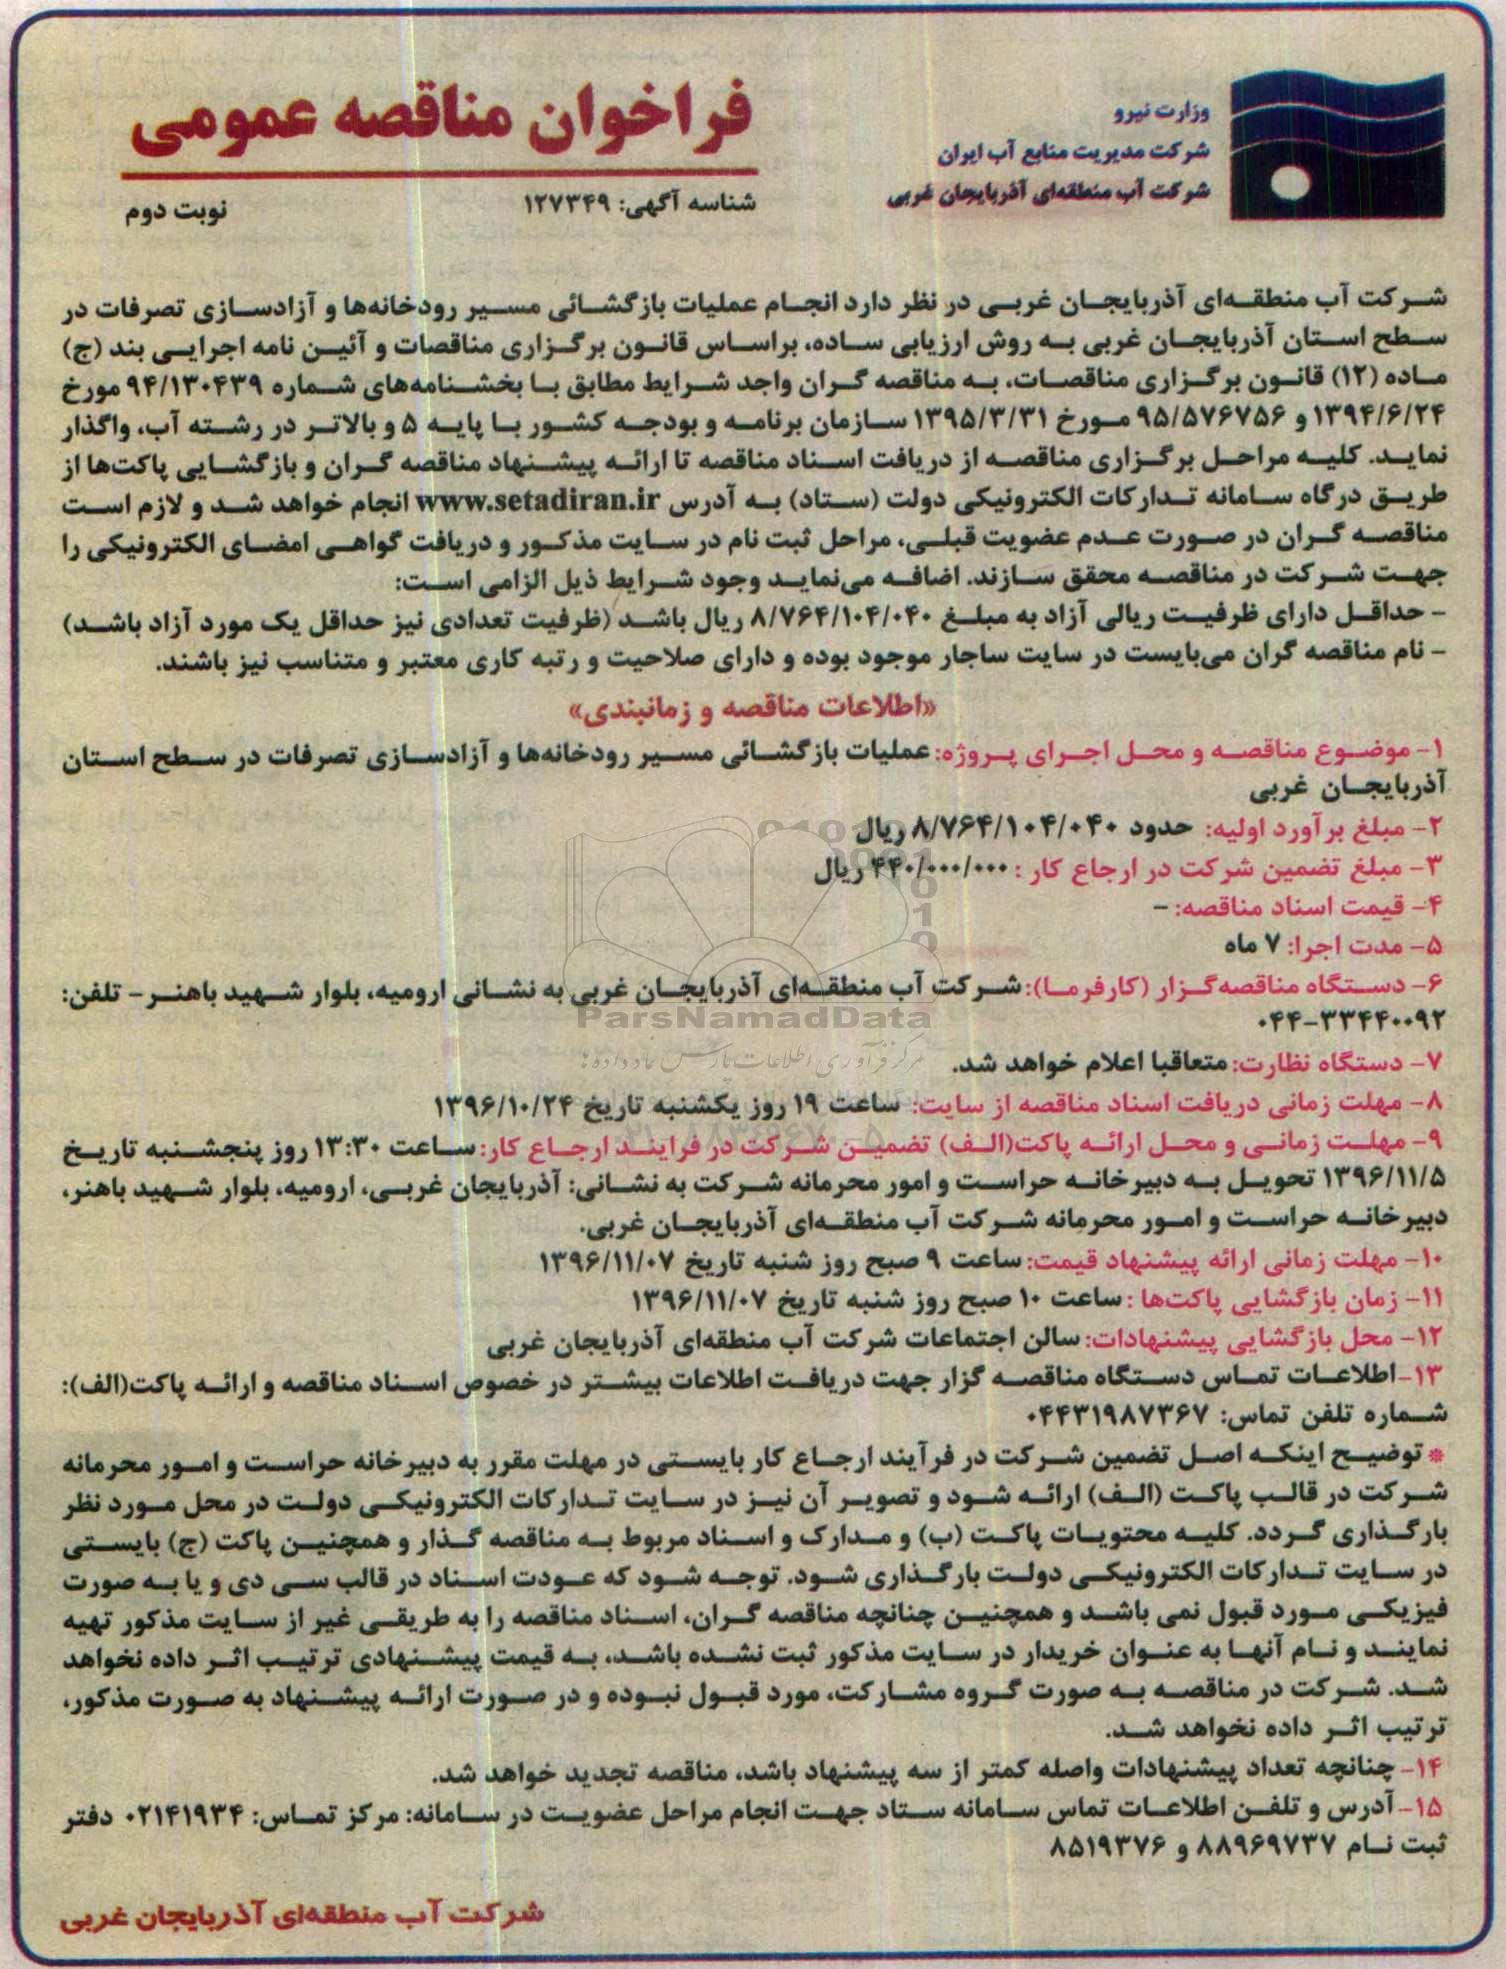 وزارت نیرو
شرکت مدیریت منابع آب ایران
شرکت آب منطقه‌ای آذربایجان غربی
فراخوان مناقصه عمومی
شناسه آگهی: ۱۲۷۳۴۹
نوبت دوم
شرکت آب منطقه‌ای آذربایجان غربی در نظر دارد انجام عملیات بازگشائی مسیر رودخانه‌ها و آزادسازی تصرفات در
سطح استان آذربایجان غربی به روش ارزیابی ساده، براساس قانون برگزاری مناقصات و آئین نامه اجرایی بند (ج)
ماده (۱۲) قانون برگزاری مناقصات، به مناقصه گران واجد شرایط مطابق با بخشنامه‌های شماره ۹۴/۱۳۰۴۳۹ مورخ
۱۳۹۴/۶/۲۴ و ۹۵/۵۷۶۷۵۶ مورخ ۱۳۹۵/۳/۳۱ سازمان برنامه و بودجه کشور با پایه ۵ و بالاتر در رشته آب، واگذار
نماید. کلیه مراحل برگزاری مناقصه از دریافت اسناد مناقصه تا ارائه پیشنهاد مناقصه گران و بازگشایی پاکت‌ها از
طریق درگاه سامانه تدارکات الکترونیکی دولت (ستاد) به آدرس www.setadiran.ir انجام خواهد شد و لازم است
مناقصه گران در صورت عدم عضویت قبلی، مراحل ثبت نام در سایت مذکور و دریافت گواهی امضای الکترونیکی را
جهت شرکت در مناقصه محقق سازند. اضافه می‌نماید وجود شرایط ذیل الزامی است:
- حداقل دارای ظرفیت ریالی آزاد به مبلغ ۸/۷۶۴/۱۰۴/۰۴۰ ریال باشد (ظرفیت تعدادی نیز حداقل یک مورد آزاد باشد)
- نام مناقصه گران می‌بایست در سایت ساجار موجود بوده و دارای صلاحیت و رتبه کاری معتبر و متناسب نیز باشند.
«اطلاعات مناقصه و زمانبندی»
۱- موضوع مناقصه و محل اجرای پروژه: عملیات بازگشائی مسیر رودخانه‌ها و آزادسازی تصرفات در سطح استان
آذربایجان غربی
۲- مبلغ برآورد اولیه: حدود ۸/۷۶۴/۱۰۴/۰۴۰ ریال
۳- مبلغ تضمین شرکت در ارجاع کار : ۴۴۰/۰۰۰/۰۰۰ ریال
۴- قیمت اسناد مناقصه: -
۵- مدت اجرا: ۷ ماه
۶- دستگاه مناقصه‌گزار (کارفرما): شرکت آب منطقه‌ای آذربایجان غربی به نشانی ارومیه، بلوار شهید باهنر- تلفن:
۰۴۴-۳۳۴۴۰۰۹۲
ParsNamadData
مرکز فرآوری اطلاعات پارس نماد داده ها
۷- دستگاه نظارت: متعاقبا اعلام خواهد شد.
۸- مهلت زمانی دریافت اسناد مناقصه از سایت: ساعت ۱۹ روز یکشنبه تاریخ ۱۳۹۶/۱۰/۲۴
۹- مهلت زمانی و محل ارائه پاکت(الف) تضمین شرکت در فرایند ارجاع کار: ساعت ۱۳:۳۰ روز پنجشنبه تاریخ
۱۳۹۶/۱۱/۵ تحویل به دبیرخانه حراست و امور محرمانه شرکت به نشانی: آذربایجان غربی، ارومیه، بلوار شهید باهنر،
دبیرخانه حراست و امور محرمانه شرکت آب منطقه‌ای آذربایجان غربی.
۱۰- مهلت زمانی ارائه پیشنهاد قیمت: ساعت ۹ صبح روز شنبه تاریخ ۱۳۹۶/۱۱/۰۷
۱۱- زمان بازگشایی پاکت‌ها : ساعت ۱۰ صبح روز شنبه تاریخ ۱۳۹۶/۱۱/۰۷
۱۲- محل بازگشایی پیشنهادات: سالن اجتماعات شرکت آب منطقه‌ای آذربایجان غربی
۱۳- اطلاعات تماس دستگاه مناقصه گزار جهت دریافت اطلاعات بیشتر در خصوص اسناد مناقصه و ارائه پاکت(الف):
شماره تلفن تماس: ۰۴۴۳۱۹۸۷۳۶۷
* توضیح اینکه اصل تضمین شرکت در فرآیند ارجاع کار بایستی در مهلت مقرر به دبیرخانه حراست و امور محرمانه
شرکت در قالب پاکت (الف) ارائه شود و تصویر آن نیز در سایت تدارکات الکترونیکی دولت در محل مورد نظر
بارگذاری گردد. کلیه محتویات پاکت (ب) و مدارک و اسناد مربوط به مناقصه گذار و همچنین پاکت (ج) بایستی
در سایت تدارکات الکترونیکی دولت بارگذاری شود. توجه شود که عودت اسناد در قالب سی دی و یا به صورت
فیزیکی مورد قبول نمی باشد و همچنین چنانچه مناقصه گران، اسناد مناقصه را به طریقی غیر از سایت مذکور تهیه
نمایند و نام آنها به عنوان خریدار در سایت مذکور ثبت نشده باشد، به قیمت پیشنهادی ترتیب اثر داده نخواهد
شد. شرکت در مناقصه به صورت گروه مشارکت، مورد قبول نبوده و در صورت ارائه پیشنهاد به صورت مذکور،
ترتیب اثر داده نخواهد شد.
۱۴- چنانچه تعداد پیشنهادات واصله کمتر از سه پیشنهاد باشد، مناقصه تجدید خواهد شد.
۱۵- آدرس و تلفن اطلاعات تماس سامانه ستاد جهت انجام مراحل عضویت در سامانه: مرکز تماس: ۰۲۱۴۱۹۳۴ دفتر
ثبت نام ۸۸۹۶۹۷۳۷ و ۸۵۱۹۳۷۶
شرکت آب منطقه‌ای آذربایجان غربی